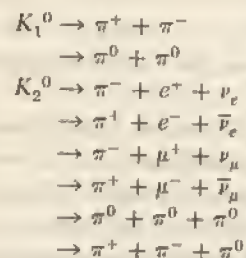 K₁⁰ → π⁺ + π⁻
→ π⁰ + π⁰
K₂⁰ → π⁻ + e⁺ + νₑ
→ π⁺ + e⁻ + ν̅ₑ
→ π⁻ + μ⁺ + ν_μ
→ π⁺ + μ⁻ + ν̅_μ
→ π⁰ + π⁰ + π⁰
→ π⁺ + π⁻ + π⁰